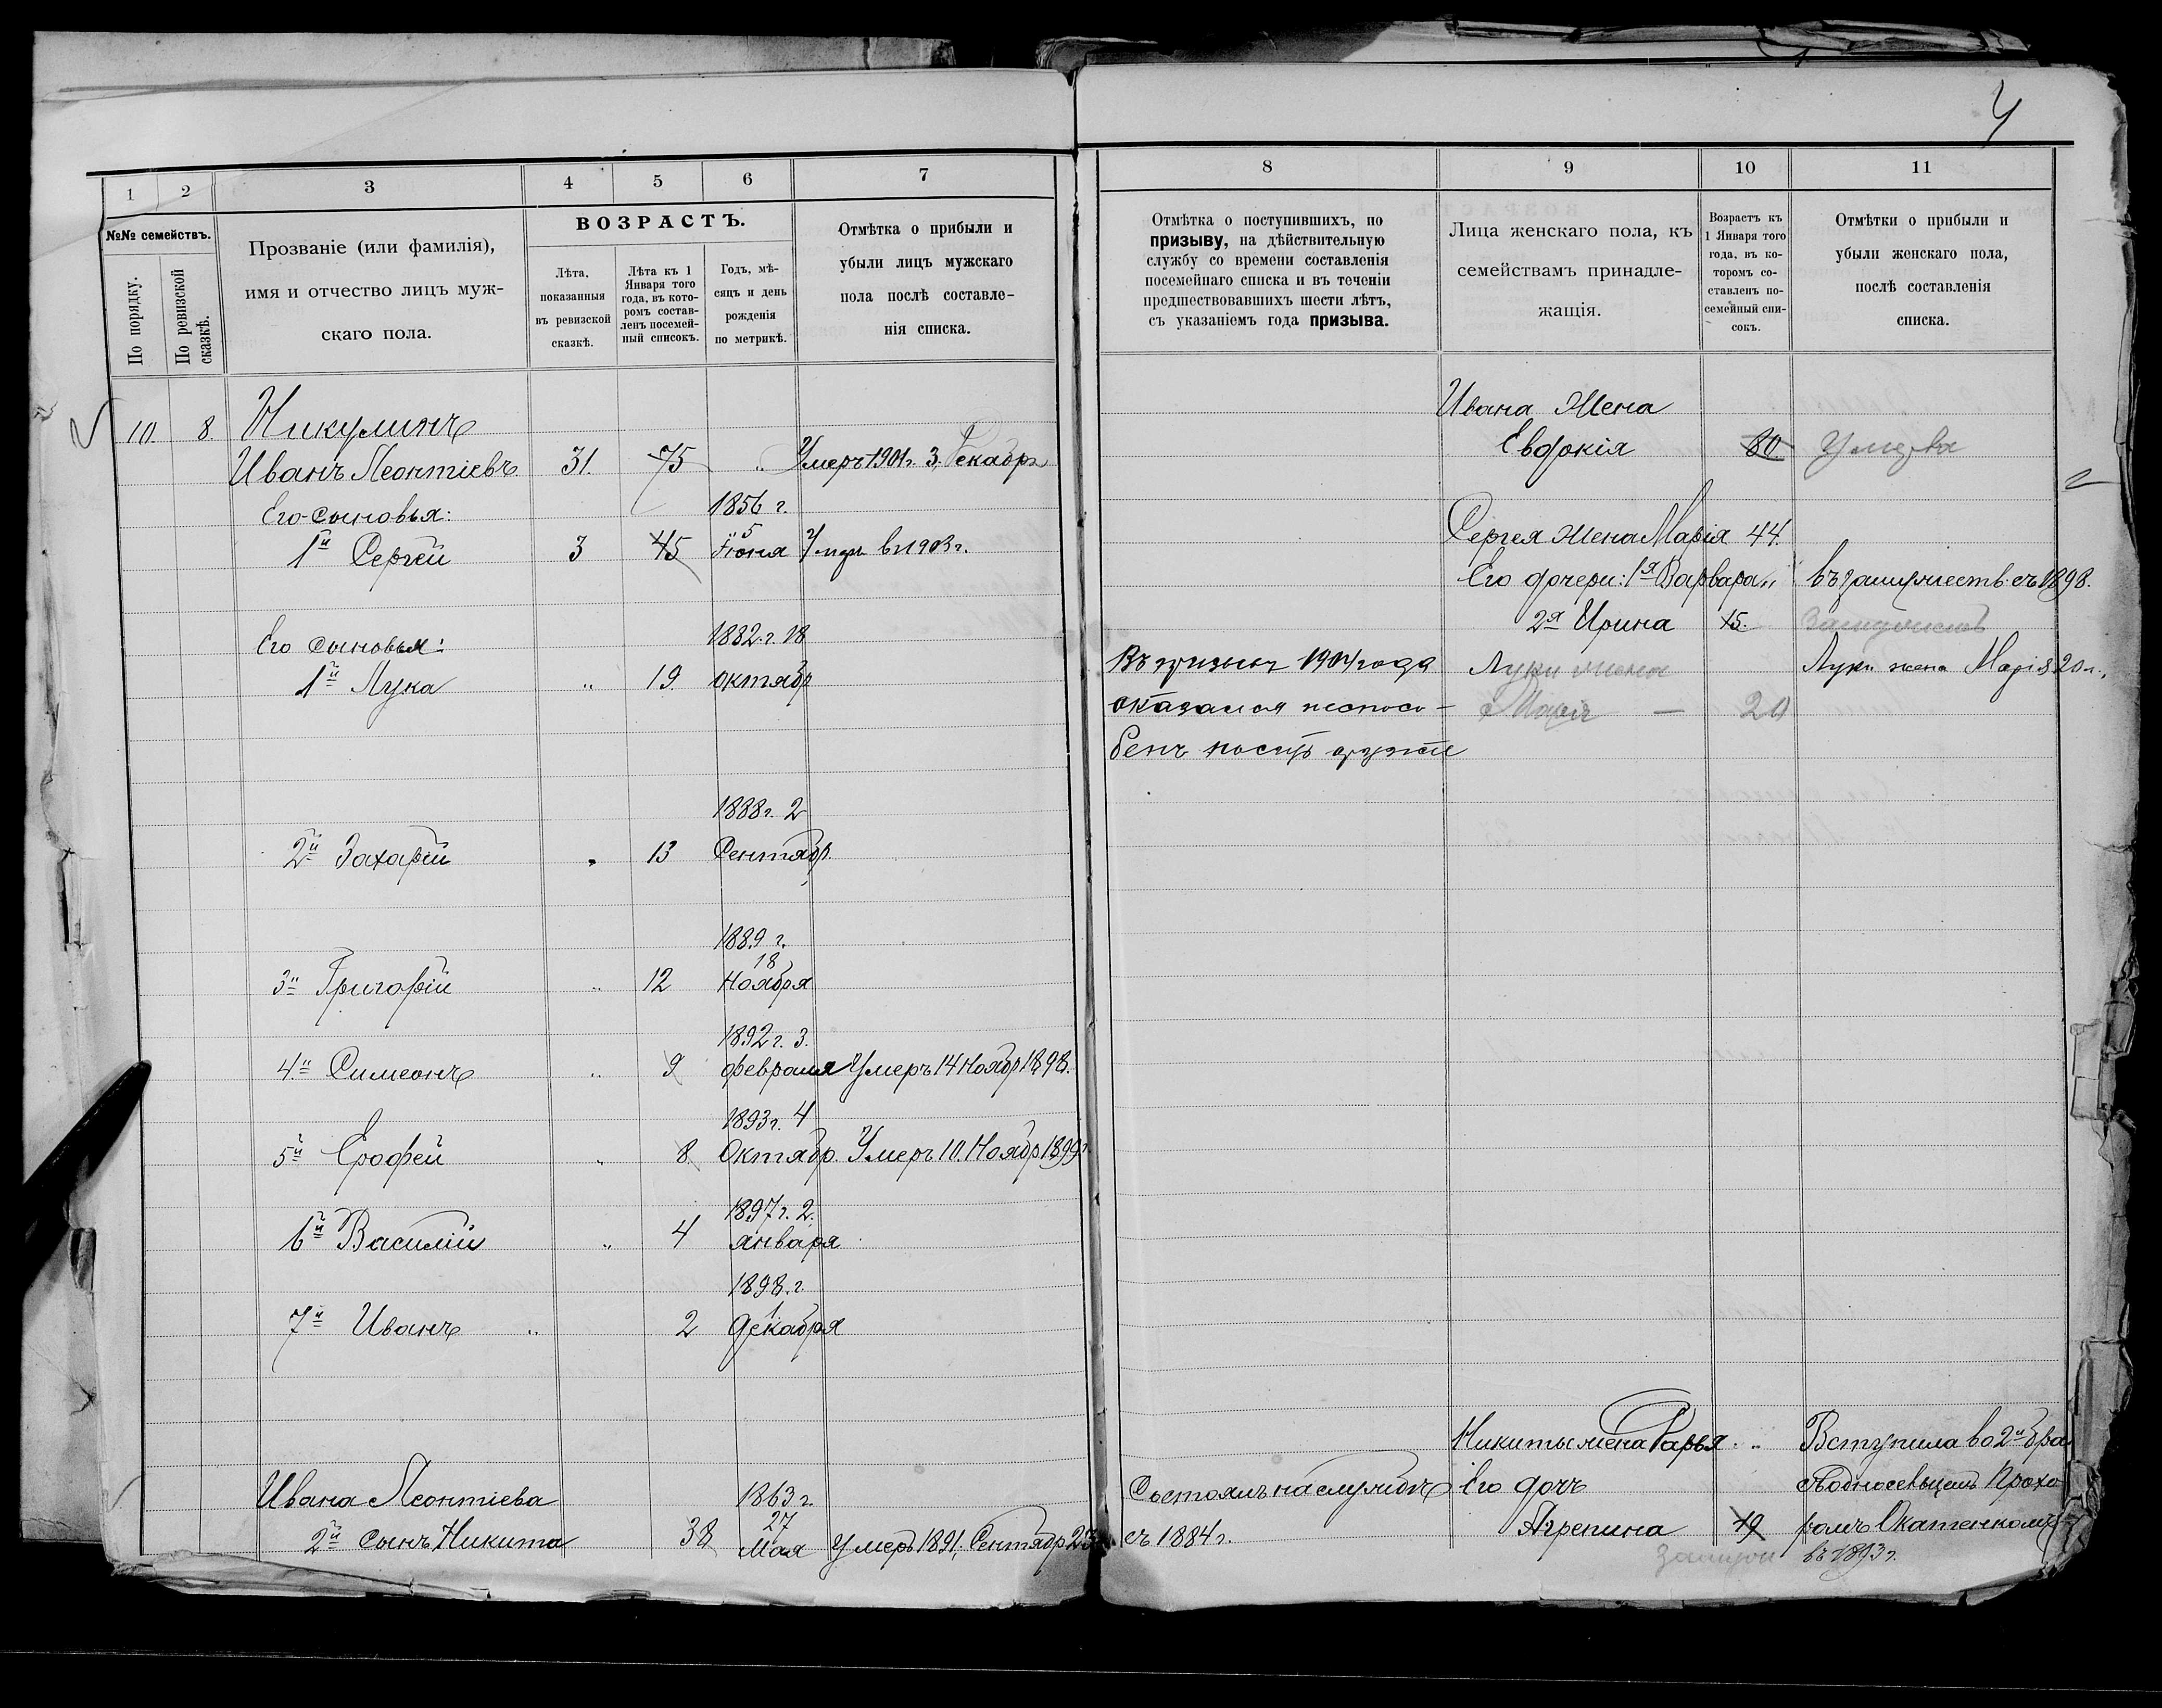 4
1 2 3 4 5 6 7
№№ семействъ.
По порядку.
По ревизской сказкѣ.
Прозваніе (или фамилія),
имя и отчество лицъ муж-
скаго пола.
ВОЗРАСТЪ.
Лѣта,
показанныя
въ ревизской
сказкѣ.
Лѣта къ 1
Января того
года, въ кото-
ромъ состав-
ленъ посемей-
ный списокъ.
Годъ, мѣ-
сяцъ и день
рожденія
по метрикѣ.
Отмѣтка о прибыли и
убыли лицъ мужскаго
пола послѣ составле-
нія списка.
10. 8. Никулинъ
Иванъ Леонтіевъ 31. 75 „ Умеръ 1901 г. 3 Декабря
Его сыновья: 1856 г.
1й Сергѣй 3 45 5 Іюня Умеръ въ 1903 г.
Его сыновья: 1882 г. 18
1й Лука „ 19. октябр
1888 г. 2
2й Захарій „ 13 Сентябр.
1889 г.
18
3й Григорій „ 12 Ноября
1892 г. 3.
4й Симеонъ „ 9 февраля Умеръ 14 Ноябр 1898.
1893 г. 4
5й Ерофей „ 8 Октябр. Умеръ 10. Ноябр 1899 г.
1897 г. 2.
6й Василій „ 4 января
1898. г.
1
7й Иванъ „ 2 декабря
Ивана Леонтіева 1863 г.
27
2й сынъ Никита 38 Мая Умеръ 1891, Сентябр 23
8 9 10 11
Отмѣтка о поступившихъ, по
призыву, на дѣйствительную
службу со времени составленія
посемейнаго списка и въ теченіи
предшествовавшихъ шести лѣтъ,
съ указаніемъ года призыва.
Лица женскаго пола, къ
семействамъ принадле-
жащія.
Возрастъ къ
1 Января того
года, въ ко-
торомъ со-
ставленъ по-
семейный спи-
сокъ.
Отмѣтки о прибыли и
убыли женскаго пола,
послѣ составленія
списка.
Ивана Жена
Евдокія 80 Умерла
Сергея жена Марія 44.
Его дочери: 1я Варвара „ въ замужеств. съ 1898.
2я Ирина 15.
Въ призывъ 1904 года Луки жена Луки жена Марія 20 л.
оказался неспосо- Марія — 20
бенъ носить оружіе
Никиты жена Дарья „ Вступила во 2й бра
Состоялъ на службѣ Его дочь
съ 1884 г. Агрепина 19
въ 1893 г.